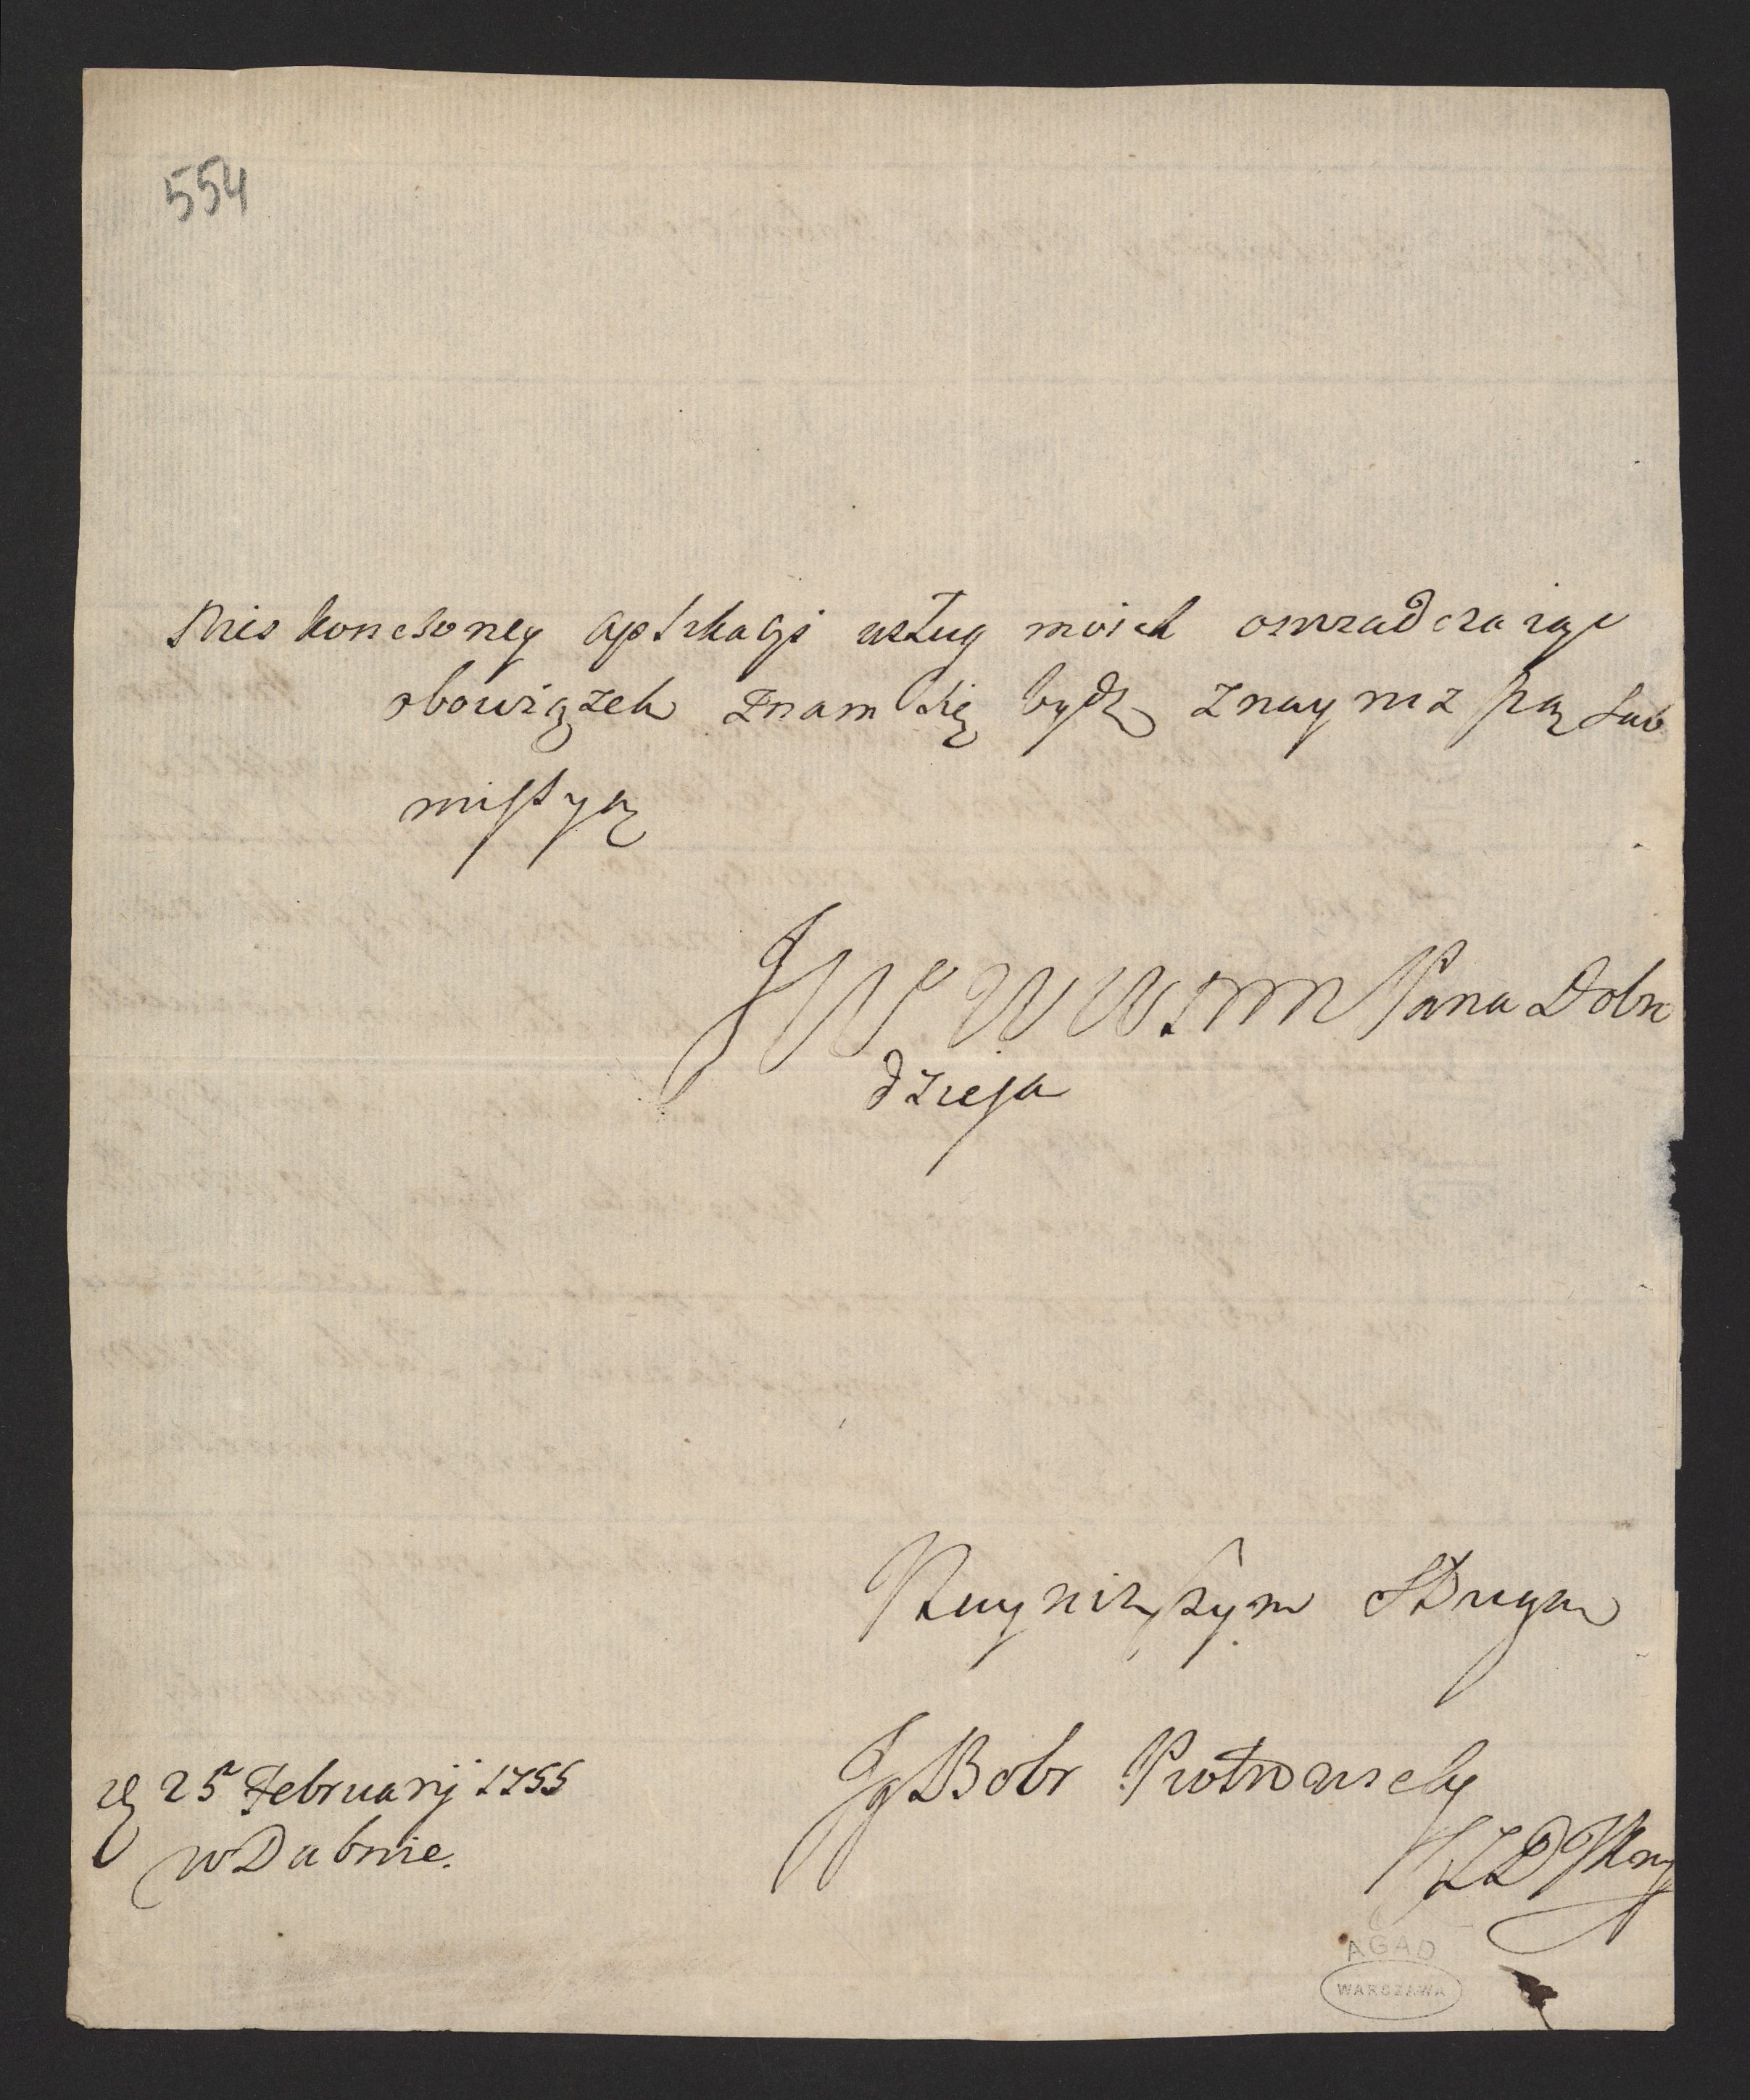 554
Nieskonczoney aplikacji usług moich oswiadczaiąc
obowiązek znam się bydz z nayniz szą sub
missyą
JWWWMM Pana Dobro
dzieja
Nayniszszym Sługą
JgBobr Piotrowicky
25 February 1755
w Dubnie.
AGAD
WARSZAWA